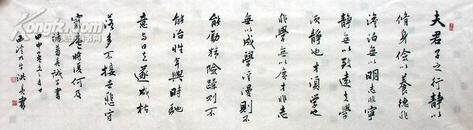 夫君子之行靜以
修身儉以養德非
澹泊無以明志非寧
靜無以致遠夫學
須靜也才須學也
非學無以廣才非志
無以成學淫漫則不
能勵精險躁則不
能治性年與時馳
意與日去遂成枯
落多不接世悲守
窮廬將復何及
諸葛亮誡子書
甲申年